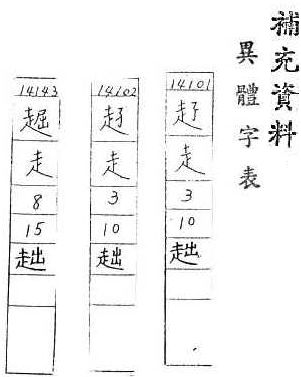 補充資料
異體字表
14101
走
3
10
趉
14102
走
3
10
趉
14143
走
8
15
趉